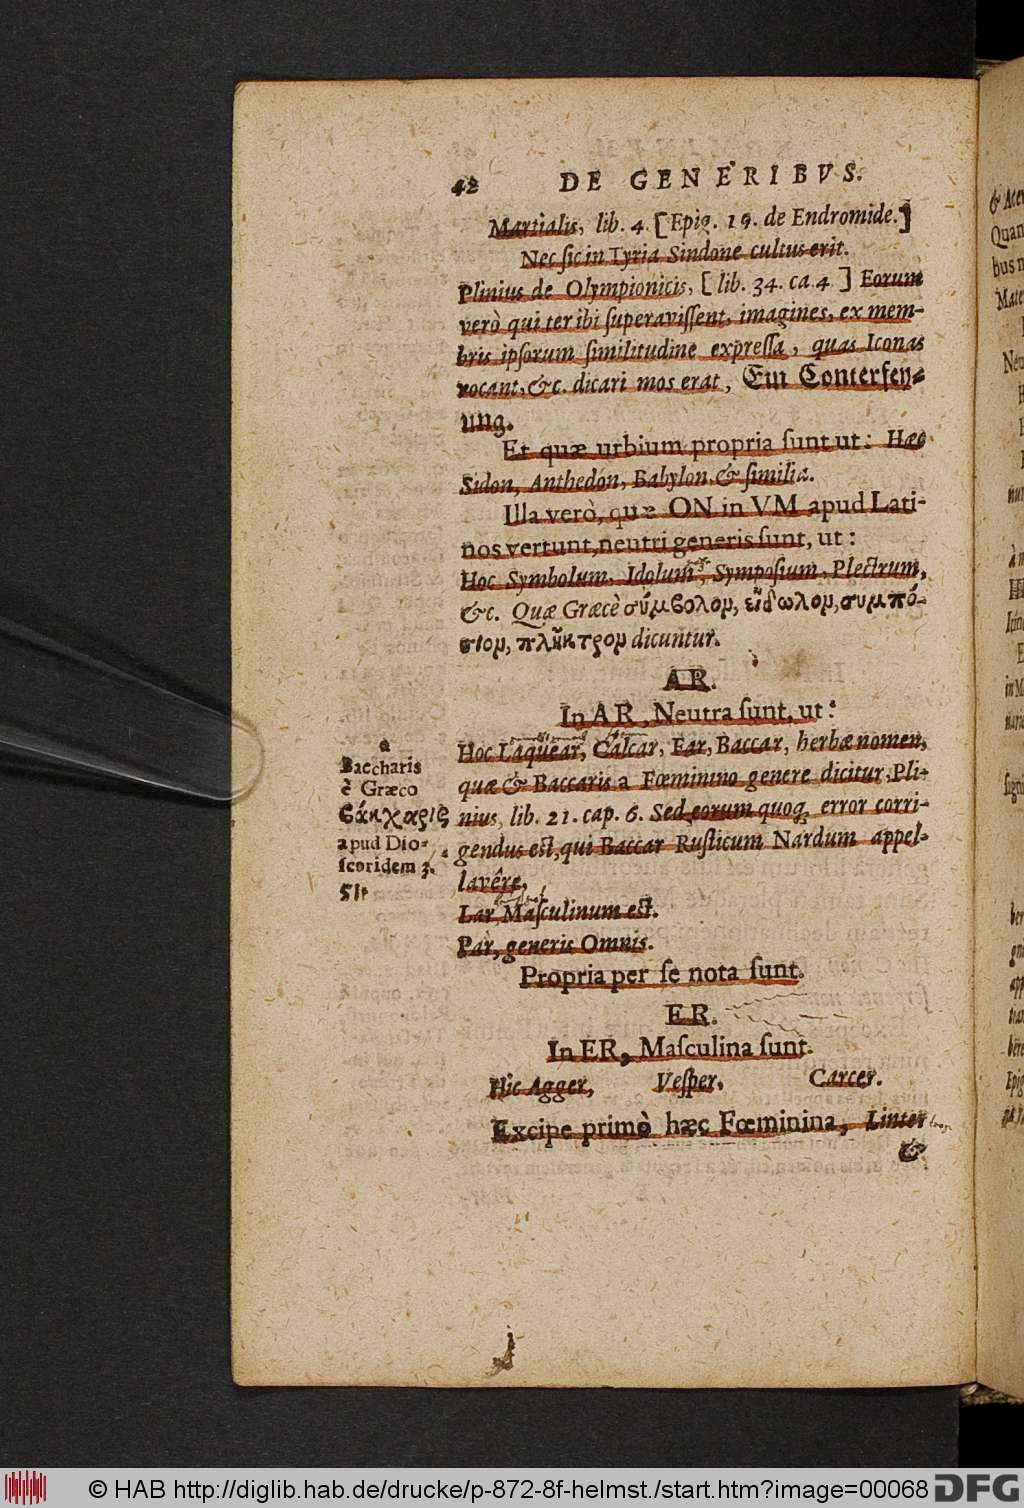 42 DE GENERIBVS.
Martialis, lib. 4. [Epig. 19. de Endromide.]
Nec ſic in Tyria Sindone cultus erit.
Plinius de Olympionicis, [lib. 34. ca 4.] Eorum
verò qui ter ibi ſuperaviſſent, imagines, ex mem-
bris ipſorum ſimilitudine expreſſa, quas Iconas
vocant, &c. dicari mos erat, Ein Conterfey-
ung.
Et quæ urbium propria ſunt ut: Hæc
Sidon, Anthedon, Babylon, & ſimilia.
Illa verò, quæ ON in VM apud Lati-
nos vertunt, neutri generis ſunt, ut:
Hoc Symbolum, Idolum, Sympoſium, Plectrum,
&c. Quæ Græcè σύμβολον, εἴδωλον, συμπό-
σιον, πλῆκτρον dicuntur.
AR.
In AR, Neutra ſunt, ut:
Hoc Laquear, Calcar, Ear, Baccar, herbæ nomen,
quæ & Baccaris a Fœminino genere dicitur, Pli-
nius, lib. 21. cap. 6. Sed eorum quoq; error corri-
gendus eſt, qui Baccar Ruſticum Nardum appel-
lavêre.
a
Baccharis
è Græco
βάκχαρις
apud Dio-
ſcoridem 3.
Sit
Lar, Maſculinum eſt.
Par, generis Omnis.
Propria per ſe nota ſunt.
ER.
In ER, Maſculina ſunt.
Hic Agger, Veſper, Carcer.
Excipe primò hæc Fœminina, Linter
&
© HAB http://diglib.hab.de/drucke/p-872-8f-helmst./start.htm?image=00068 DFG